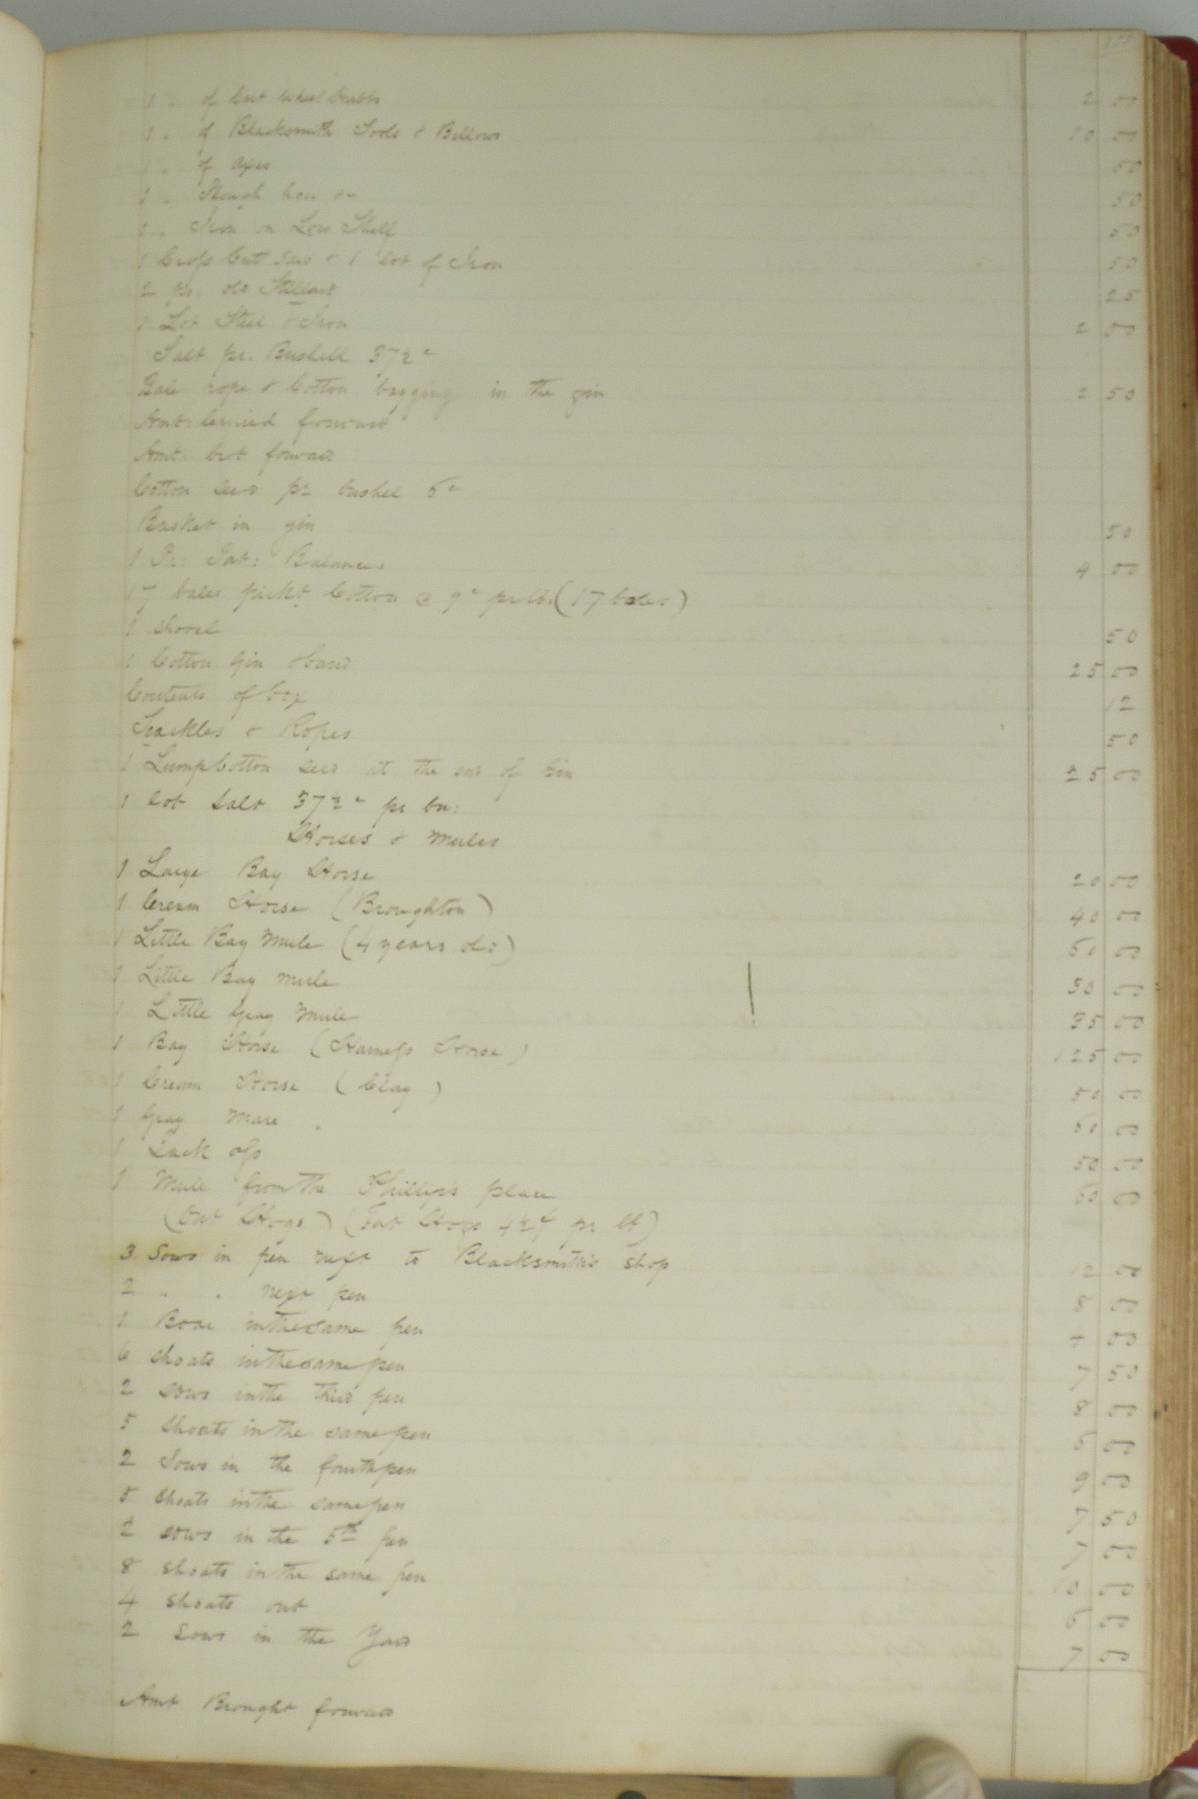 1 " of Cart wheel 2 00
1 " of Blacksmith Tools & Bellows 10 00
1 " of axes 50
1 " Plough hoes &c 50
1 " Iron on Low Shelf 50
1 Cross Cut Saw & 1 lot of Iron 50
2 pr. old Stillards 25
1 Lot Steel & Iron 2 00
Salt pr. Bushell 37½ c
Bale rope & Cotton bagging in the gin 2 50
Amt. Carried forward
Amt. brt forward
Cotton seed pr bushel 6 c
Basket in gin 50
1 Pr: Pat: Balances 4 00
17 bales pickt Cotton @ 9 c pr lb (17 bales)
1 shovel 50
1 Cotton Gin & band 25 00
Contents of box 12
Trackles & Ropes 50
1 Lump Cotton seed at the end of Gin 25 00
1 lot Salt 37½ c pr bu:
Horses & mules
1 Large Bay Horse 20 00
1 Cream Horse (Broughton) 40 00
1 Little Bay Mule (4 years old) 60 00
1 Little Bay mule 30 00
1 Little Gray Mule 35 00
1 Bay Horse (Harness Horse) 125 00
1 Cream Horse (Clay) 50 00
1 Gray Mare 60 00
1 Jack ass 50 00
1 Mule from the Phillips place 60 00
(Out Hogs) (Fat Hogs 4½ ¢ pr lb)
3 Sows in pen next to Blacksmiths shop 12 00
2 " " next pen 8 00
1 Boar in the same pen 4 00
6 shoats in the same pen 7 50
2 sows in the third pen 8 00
5 shoats in the same pen 5 00
2 Sows in the fourth pen 9 00
5 shoats in the same pen 7 50
2 sows in the 5th pen 7 00
8 shoats in the same pen 10 00
4 shoats out 6 00
2 Sows in the Yard 7 00
Amt Brought forward